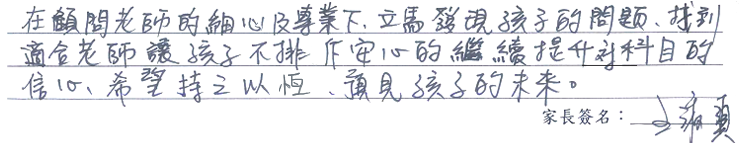 在顧問老師的細心及專業下、立馬發現孩子的問題、找到
適合老師讓孩子不排斥安心的繼續提升對科目的
信心、希望持之以恆、預見孩子的未來。
家長簽名：